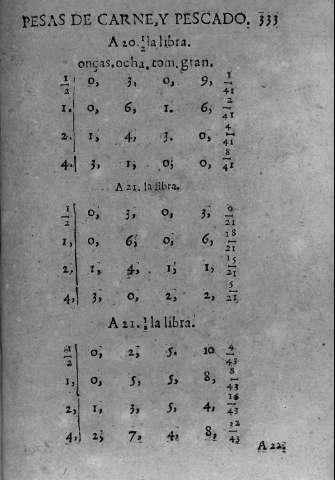 PESAS DE CARNE, Y PESCADO. 333
A 20. 1/2 la libra.
onças. ocha. tom. gran.
1/2 | 0, 3, 0, 9, 1/41
1. | 0, 6, 1. 6, 2/41
2. | 1, 4, 3. 0, 4/41
4. | 3, 1, 0; 0, 8/41
A 21. la libra.
1/2 | 0, 3, 0, 3, 0/21
1, | 0, 6, 0, 6, 18/21
2, | 1, 4, 1, 1, 15/21
4, | 3, 0, 2, 2, 5/21
A 21. 1/2 la libra.
1/2 | 0, 2, 5. 10 4/43
1, | 0, 5, 5, 8, 8/43
2, | 1, 3, 5, 4, 16/43
4, | 2, 7, 4, 8, 32/43
A 22,